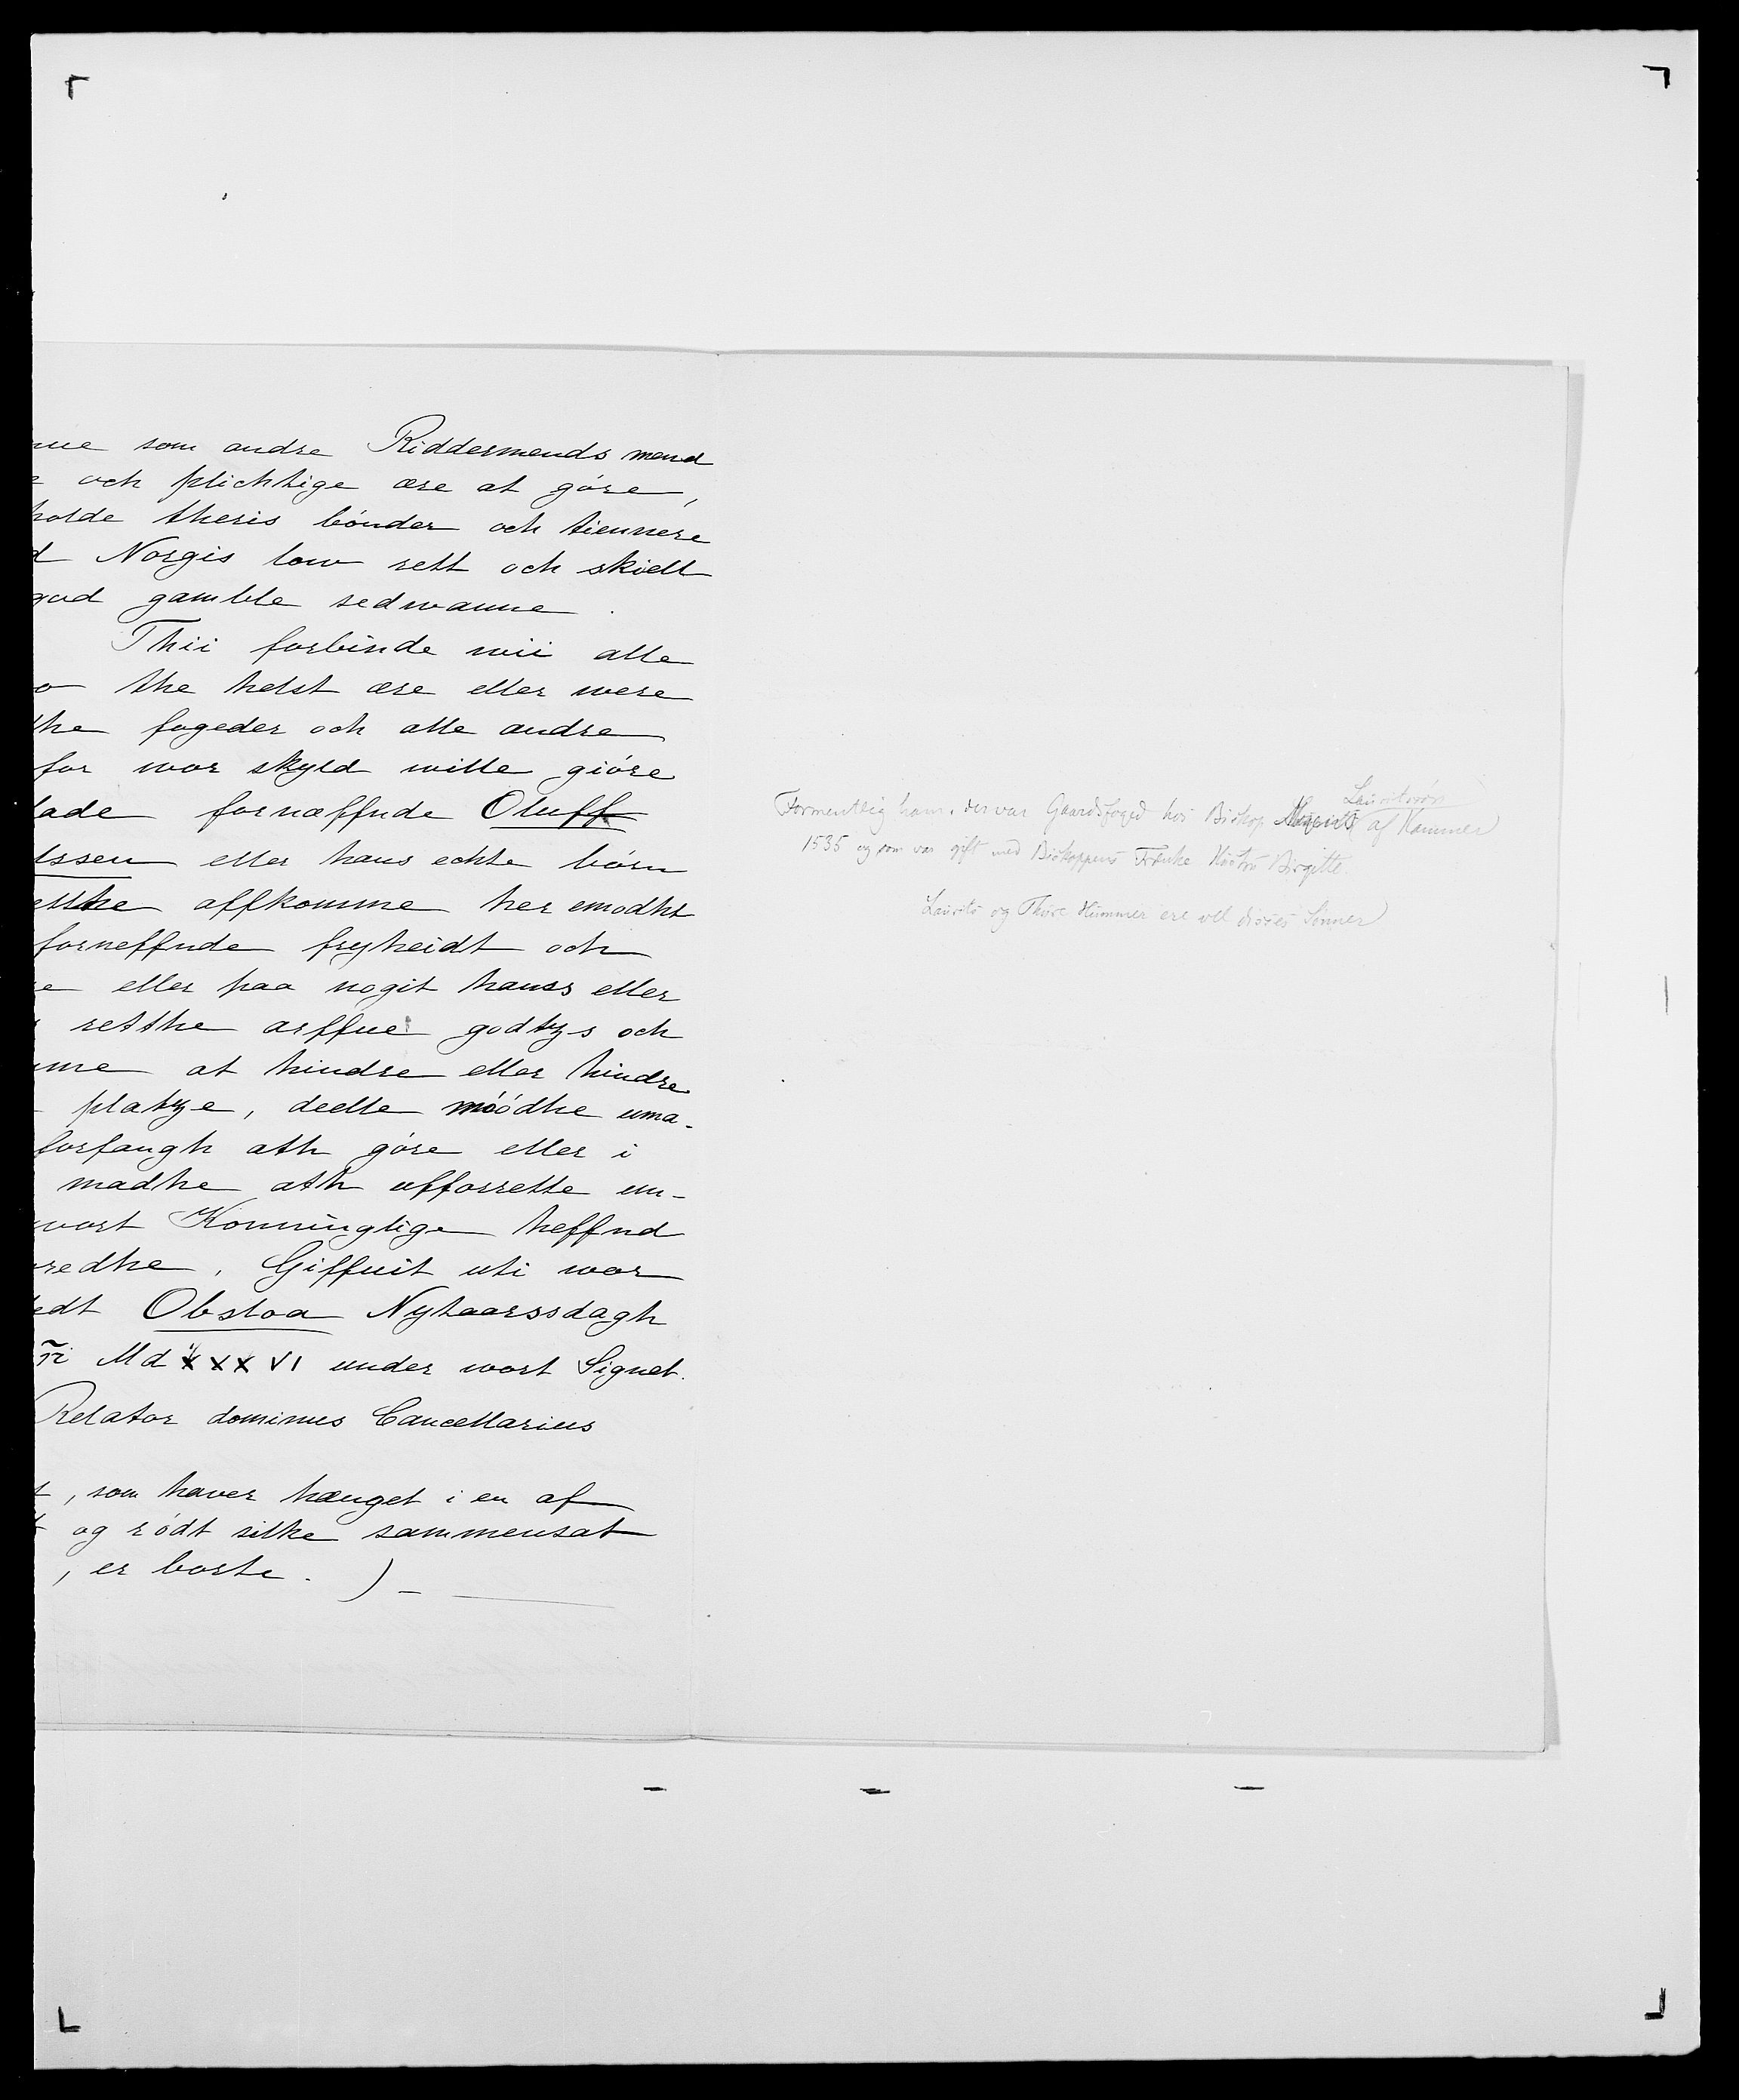 som andre Riddermends mend
och plichtige ære at góre,
holde theris bónder och tiennere
Norgis low rett och skiell
god gamble sedwanne.
Thii forbinde wii alle
the helst ære eller were
the fogeder och alle andre
for wor skyld wille gióre
lade fornæffnde Oluff
lssen eller hans echte bórn
retthe affkomme her emodht
forneffnde fryheidt och
eller paa nogit hanss eller
retthe arffue godtzs och
at hindre eller hindre
platze, deelle móódhe uma-
forfangh ath góre eller i
madhe ath ufforrette un-
wort Konninglige heffnd
wredhe. Giffuit uti wor
edt Obsloa Nyhaarssdagh
Md xxx VI under wort Signet.
Relator dominus Cancellarius
t, som haver hænget i en af
og ródt silke sammensat
, er borte. ) -
Lauritssøn
Formentlig ham, der var Gaardsfoged hos Biskop af Hammer
1535 og som var gift med Biskoppens Frænke Birgitte.
Laurits og Thore Hummer ere vel disses Sønner